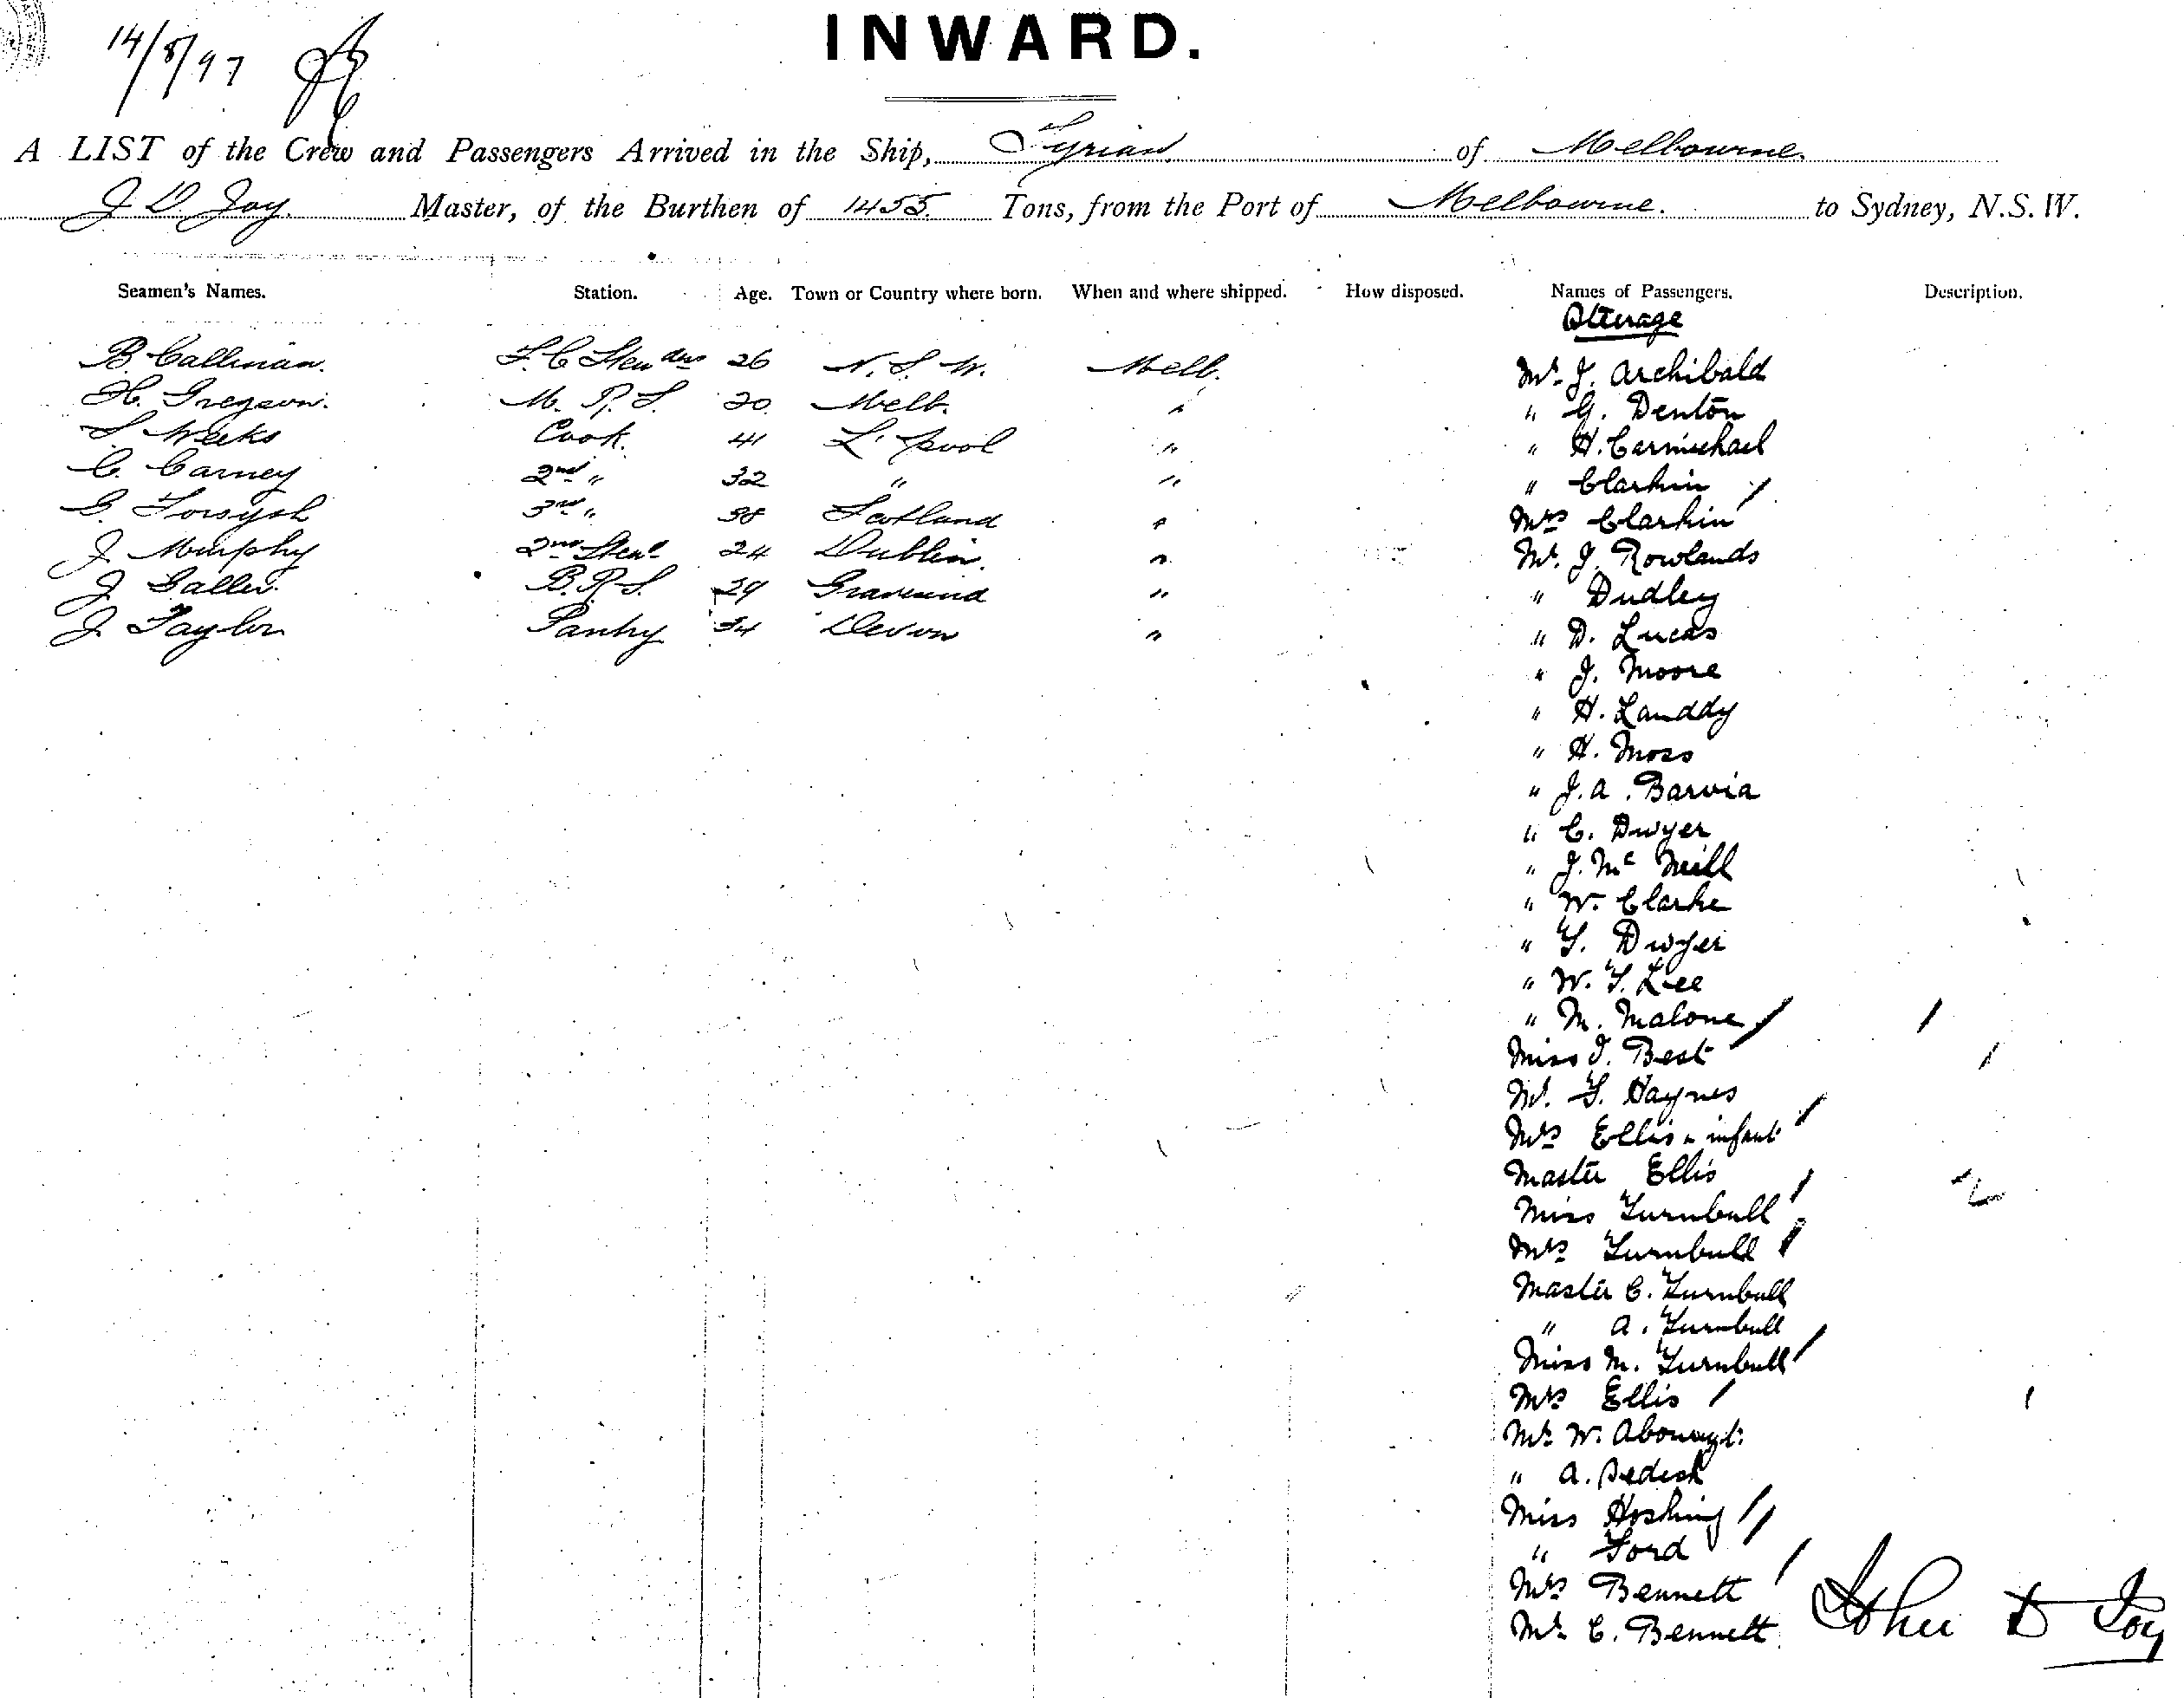 14/8/97
INWARD.
A LIST of the Crew and Passengers Arrived in the Ship, Tyrian of Melbourne.
J D Joy. Master, of the Burthen of 1455. Tons, from the Port of Melbourne. to Sydney, N.S.W.
Seamen's Names. Station. Age. Town or Country where born. When and where shipped. How disposed. Names of Passengers. Description.
Steerage
B. Callinan. F. C. Stewdess 26 N. S. W. Melb. Mr. J. Archibald
H. Gregson. M. R. S. 20 Melb. " " G. Denton
S Weeks Cook. 41 L'pool " " H. Carmichael
C. Carney 2nd " 32 " " " Clarkin
G. Forsyth 3rd " 38 Scotland " Mrs Clarkin
J. Murphy 2nd Stewd 24 Dublin. " Mr. J. Rowlands
J B.R.S. 29 Gravesend " " Dudley
J. Taylor Pantry 34 Devon " " D. Lucas
" J. Moore
" H. Landdy
" H. Moss
" J. A. Barvia
" C. Dwyer
" J. Mc Neill
" W. Clarke
" T. Dwyer
" W. T. Lee
" M. Malone
Miss J. Best
Mr. T. Haynes
Mrs Ellis & infant
Master Ellis
Miss Turnbull
Mrs Turnbull
Master C. Turnbull
" A. Turnbull
Miss M. Turnbull
Mrs Ellis
Mr. W.
" A.
Miss Hosking
" Ford
Mrs Bennett
Mr. C. Bennett
John D Joy